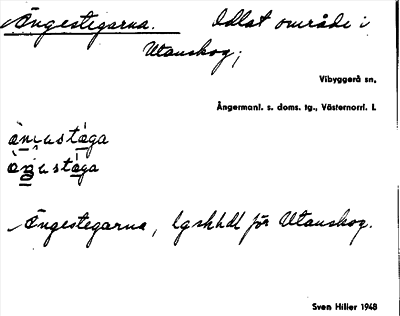 Ängestegarna. Odlat område i
Utanskog;
Vibyggerå sn.
Ångermanl. s. doms. tg., Västernorrl. l.
Ängestegarna, lgskhdl för Utanskog.
Sven Hiller 1948